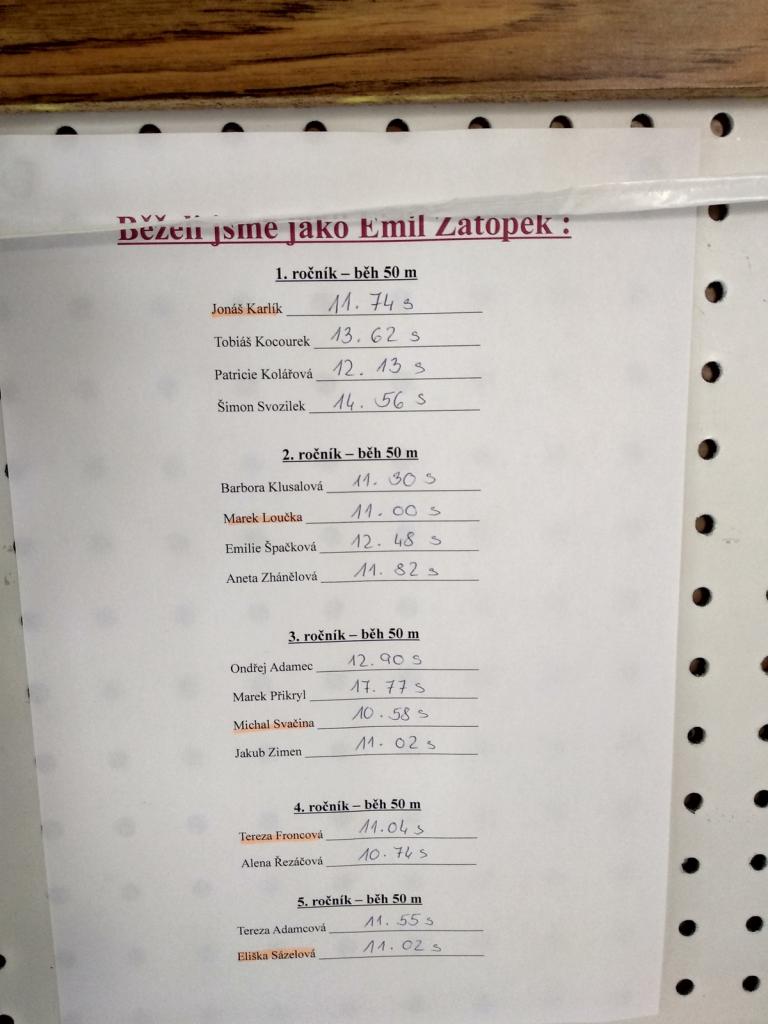 Běželi jsme jako Emil Zátopek :
1. ročník – běh 50 m
Jonáš Karlík 11.74 s
Tobiáš Kocourek 13.62 s
Patricie Kolářová 12.13 s
Šimon Svozilek 14.56 s
2. ročník – běh 50 m
Barbora Klusalová 11.30 s
Marek Loučka 11.00 s
Emilie Špačková 12.48 s
Aneta Zhánělová 11.82 s
3. ročník – běh 50 m
Ondřej Adamec 12.90 s
Marek Přikryl 17.77 s
Michal Svačina 10.58 s
Jakub Zimen 11.02 s
4. ročník – běh 50 m
Tereza Froncová 11.04 s
Alena Řezáčová 10.74 s
5. ročník – běh 50 m
Tereza Adamcová 11.55 s
Eliška Sázelová 11.02 s